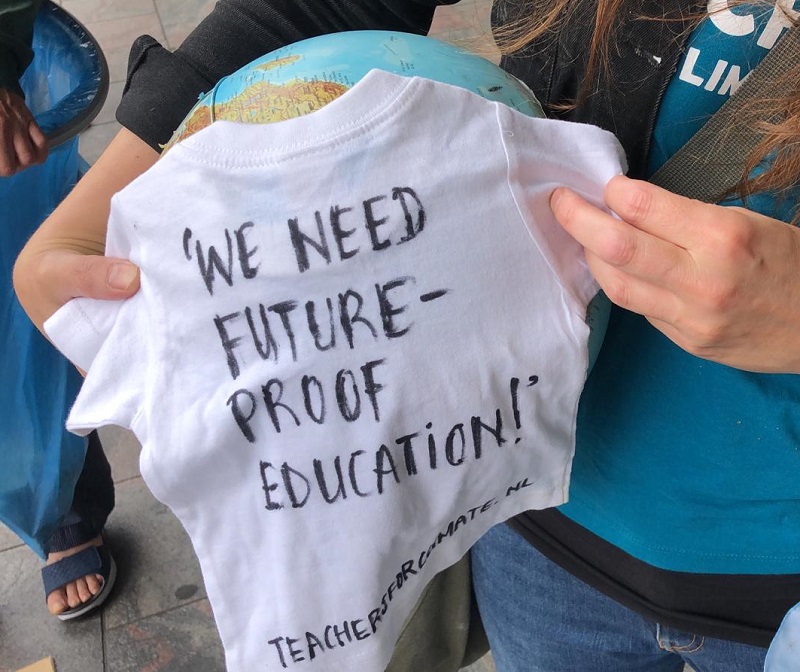 'WE NEED
FUTURE-
PROOF
EDUCATiON!'
TEACHERSFORCLIMATE.NL
LIM